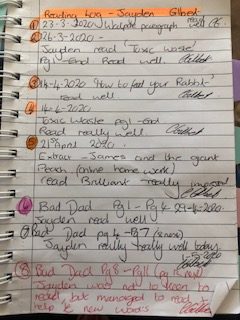 Reading Log - Jayden Gilbert
① 23-3-2020 Walpole paragraph read OK
② 26-3-2020 -
Jayden read 'Toxic Waste'
Pg1 - End Read well. Gilbert
③ 14-4-2020 'How to feel your Rabbit'
read well Gilbert
④ 14-4-2020
Toxic Waste pg1 - End
Read really well. Gilbert
⑤ 21st April 2020.
Extract - James and the giant
Peach (online home work)
read Brilliant really
Gilbert
⑥ Bad Dad Pg1 - Pg4 29-4-2020
Jayden read well. Gilbert
⑦ Bad Dad pg4 - Pg7
Jayden really really well today
Gilbert
⑧ Bad Dad Pg8 - Pg11
Jayden was not to keen to
read, but managed to read
help & new words Gilbert